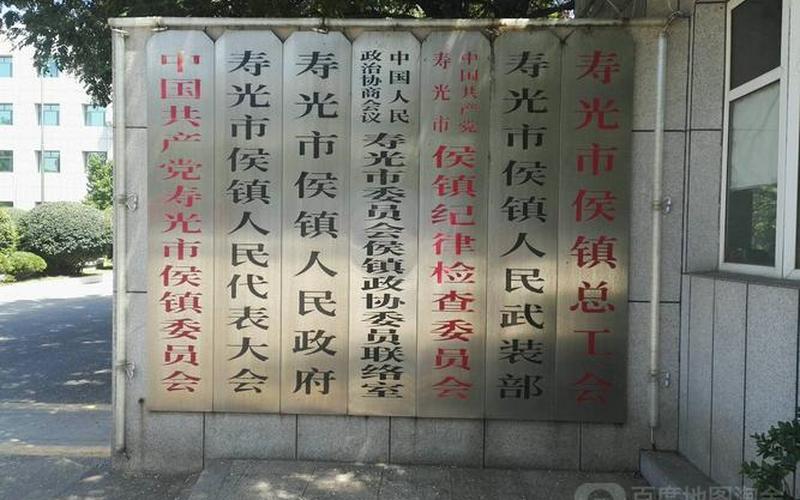 中国共产党寿光市侯镇委员会
寿光市侯镇人民代表大会
寿光市侯镇人民政府
中国人民
政治协商会议
寿光市委员会侯镇政协委员联络室
中国共产党
寿光市
侯镇纪律检查委员会
寿光市侯镇人民武装部
寿光市侯镇总工会
百度地图淘金